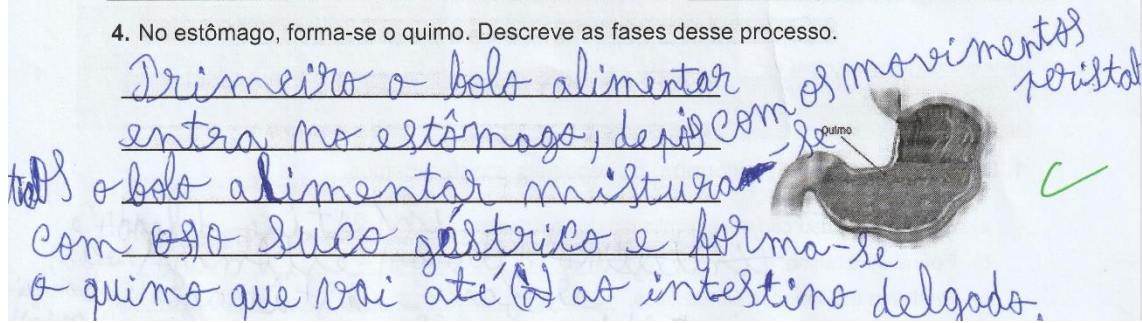 4. No estômago, forma-se o quimo. Descreve as fases desse processo.
Primeiro o bolo alimentar
entra no estômago, depois com os movimentos peristál
Quimo
ticos o bolo alimentar mistura-se
com o suco gástrico e forma-se
o quimo que vai até (à) ao intestino delgado.